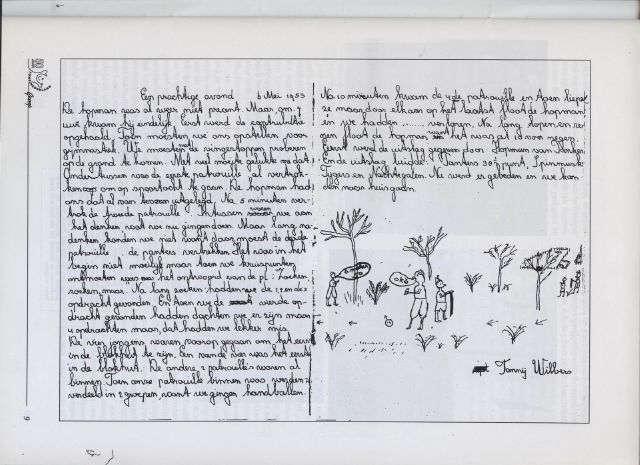 Een prachtige avond 6 Mei 1953
De hopman was al weer niet present. Maar om 7
uur kwam hij eindelijk. Eerst werd de contributie
opgehaald. Toen moesten we ons opstellen voor
gymnastiek. We moesten de vingertoppen proberen
op de grond te komen. Met veel moeite gelukte me dat.
Ondertussen was de eerste patrouille al vertrok-
ken om op speurtocht te gaan. De hopman had
ons dat al van tevoren uitgelegd. Na 5 minuten ver-
trok de tweede patrouille. Intussen waren we aan
het denken wat we nu gingen doen. Maar lang na
denken konden we niet want daar moest de derde
patrouille de panters vertrekken. Het was in het
begin niet moeilijk maar toen we kruispunten
ontmoetten was het
zoeken maar. Na lang zoeken hadden we de 1e en de
opdracht gevonden. En toen we de werde op-
dracht gevonden hadden dachten we er zijn maar
4 opdrachten maar, dat hadden we lekker mis.
De vier jongens waren voorop gegaan om het eerst
in de blokhut te zijn. Een van de vier was het eerst
in de blokhut. De andere 2 patrouilles waren al
binnen. Toen onze patrouille binnen was werden we
verdeeld in 2 groepen, want we gingen handballen.
Na 10 minuten kwam de 4de patrouille en toen liepen
ze maar door elkaar op het laatst floot de hopman
en we hadden ...... verloren. Na lang lopen en
floot de hopman want het was al 10 voor negen
Eerst werd de uitslag gegeven door Hopman van
En de uitslag luidde: Panters 30½ punt,
Tijgers en Nachtegalen. Na werd er gebeden en we kon-
den naar huis gaan.
Tonny Wilbers
9